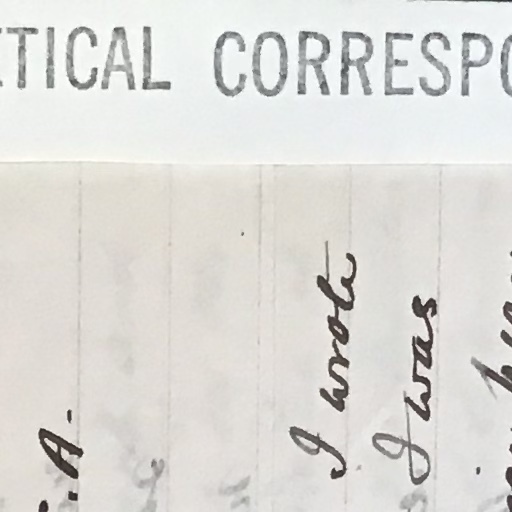 .A.
I wrote
I was
TICAL CORRESPO